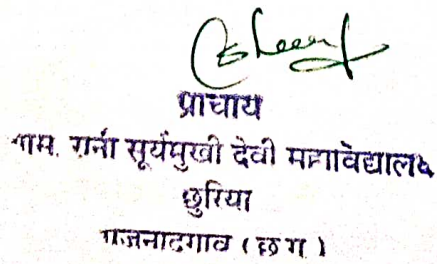 प्राचार्य
शास. रानी सूर्यमुखी देवी महाविद्यालय
छुरिया
राजनांदगांव ( छ ग )